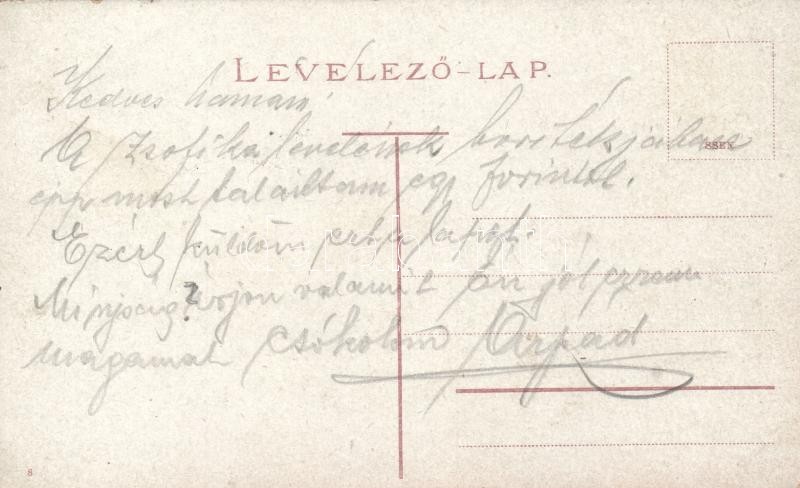 LEVELEZŐ-LAP.
Kedves Mamám!
A Zsofika levelének borítékjában
épp most találtam egy forintot.
Ezért küldöm ezt a lapot.
Mi újság? írjon valamit én jól érzem
magamat csókolom Árpád
8